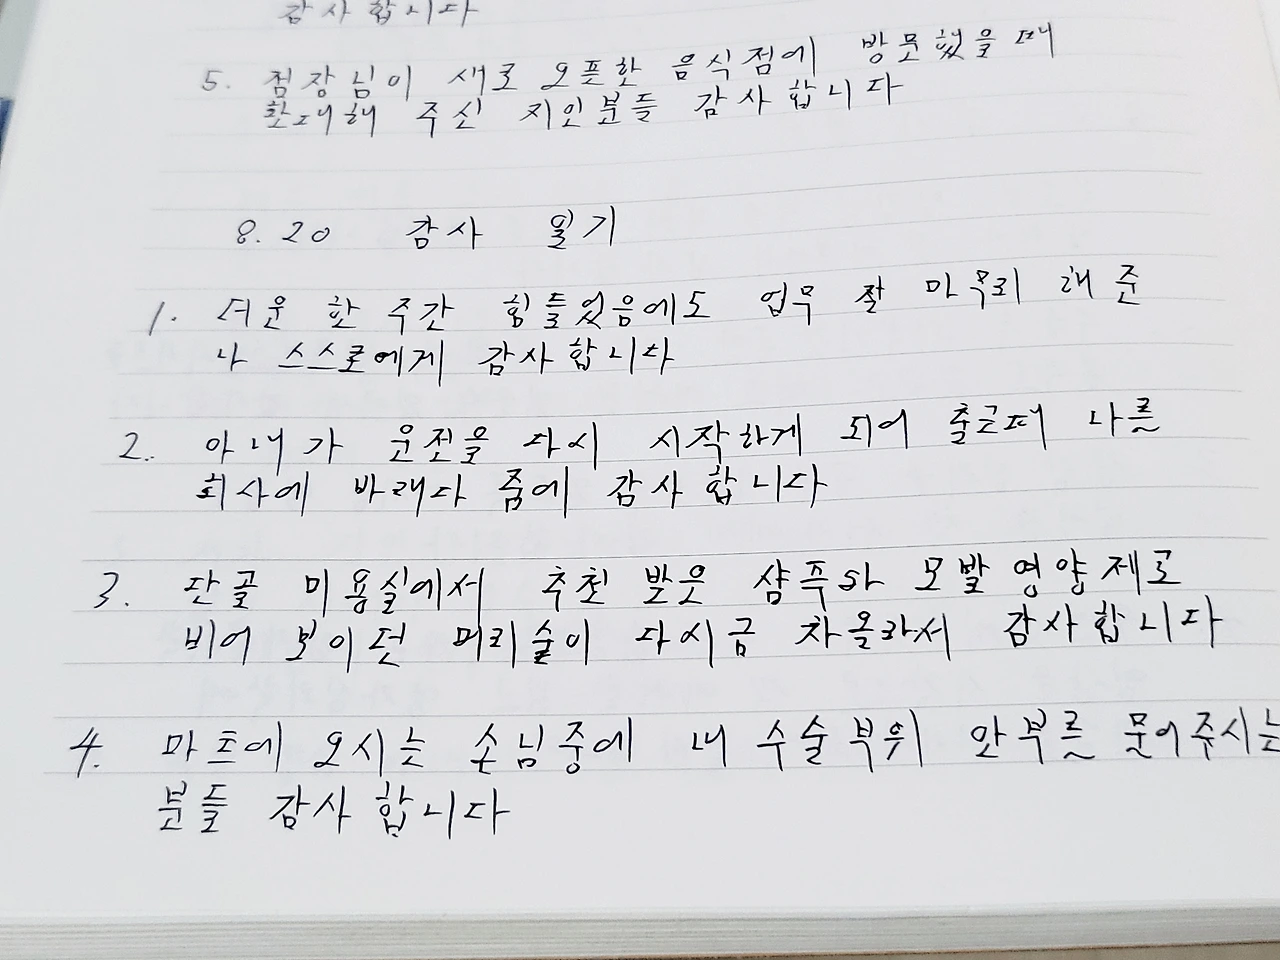 감사합니다
5. 점장님이 새로 오픈한 음식점에 방문했을때
환대해 주신 지인분들 감사합니다
8.20 감사 일기
1. 더운 한 주간 힘들었음에도 업무 잘 마무리 해준
나 스스로에게 감사합니다
2. 아내가 운전을 다시 시작하게 되어 출근때 나를
회사에 바래다 줌에 감사합니다
3. 단골 미용실에서 추천 받은 샴푸와 모발영양제로
비어 보이던 머리숱이 다시금 차올라서 감사합니다
4. 마트에 오시는 손님중에 내 수술부위 안부를 물어주시는
분들 감사합니다